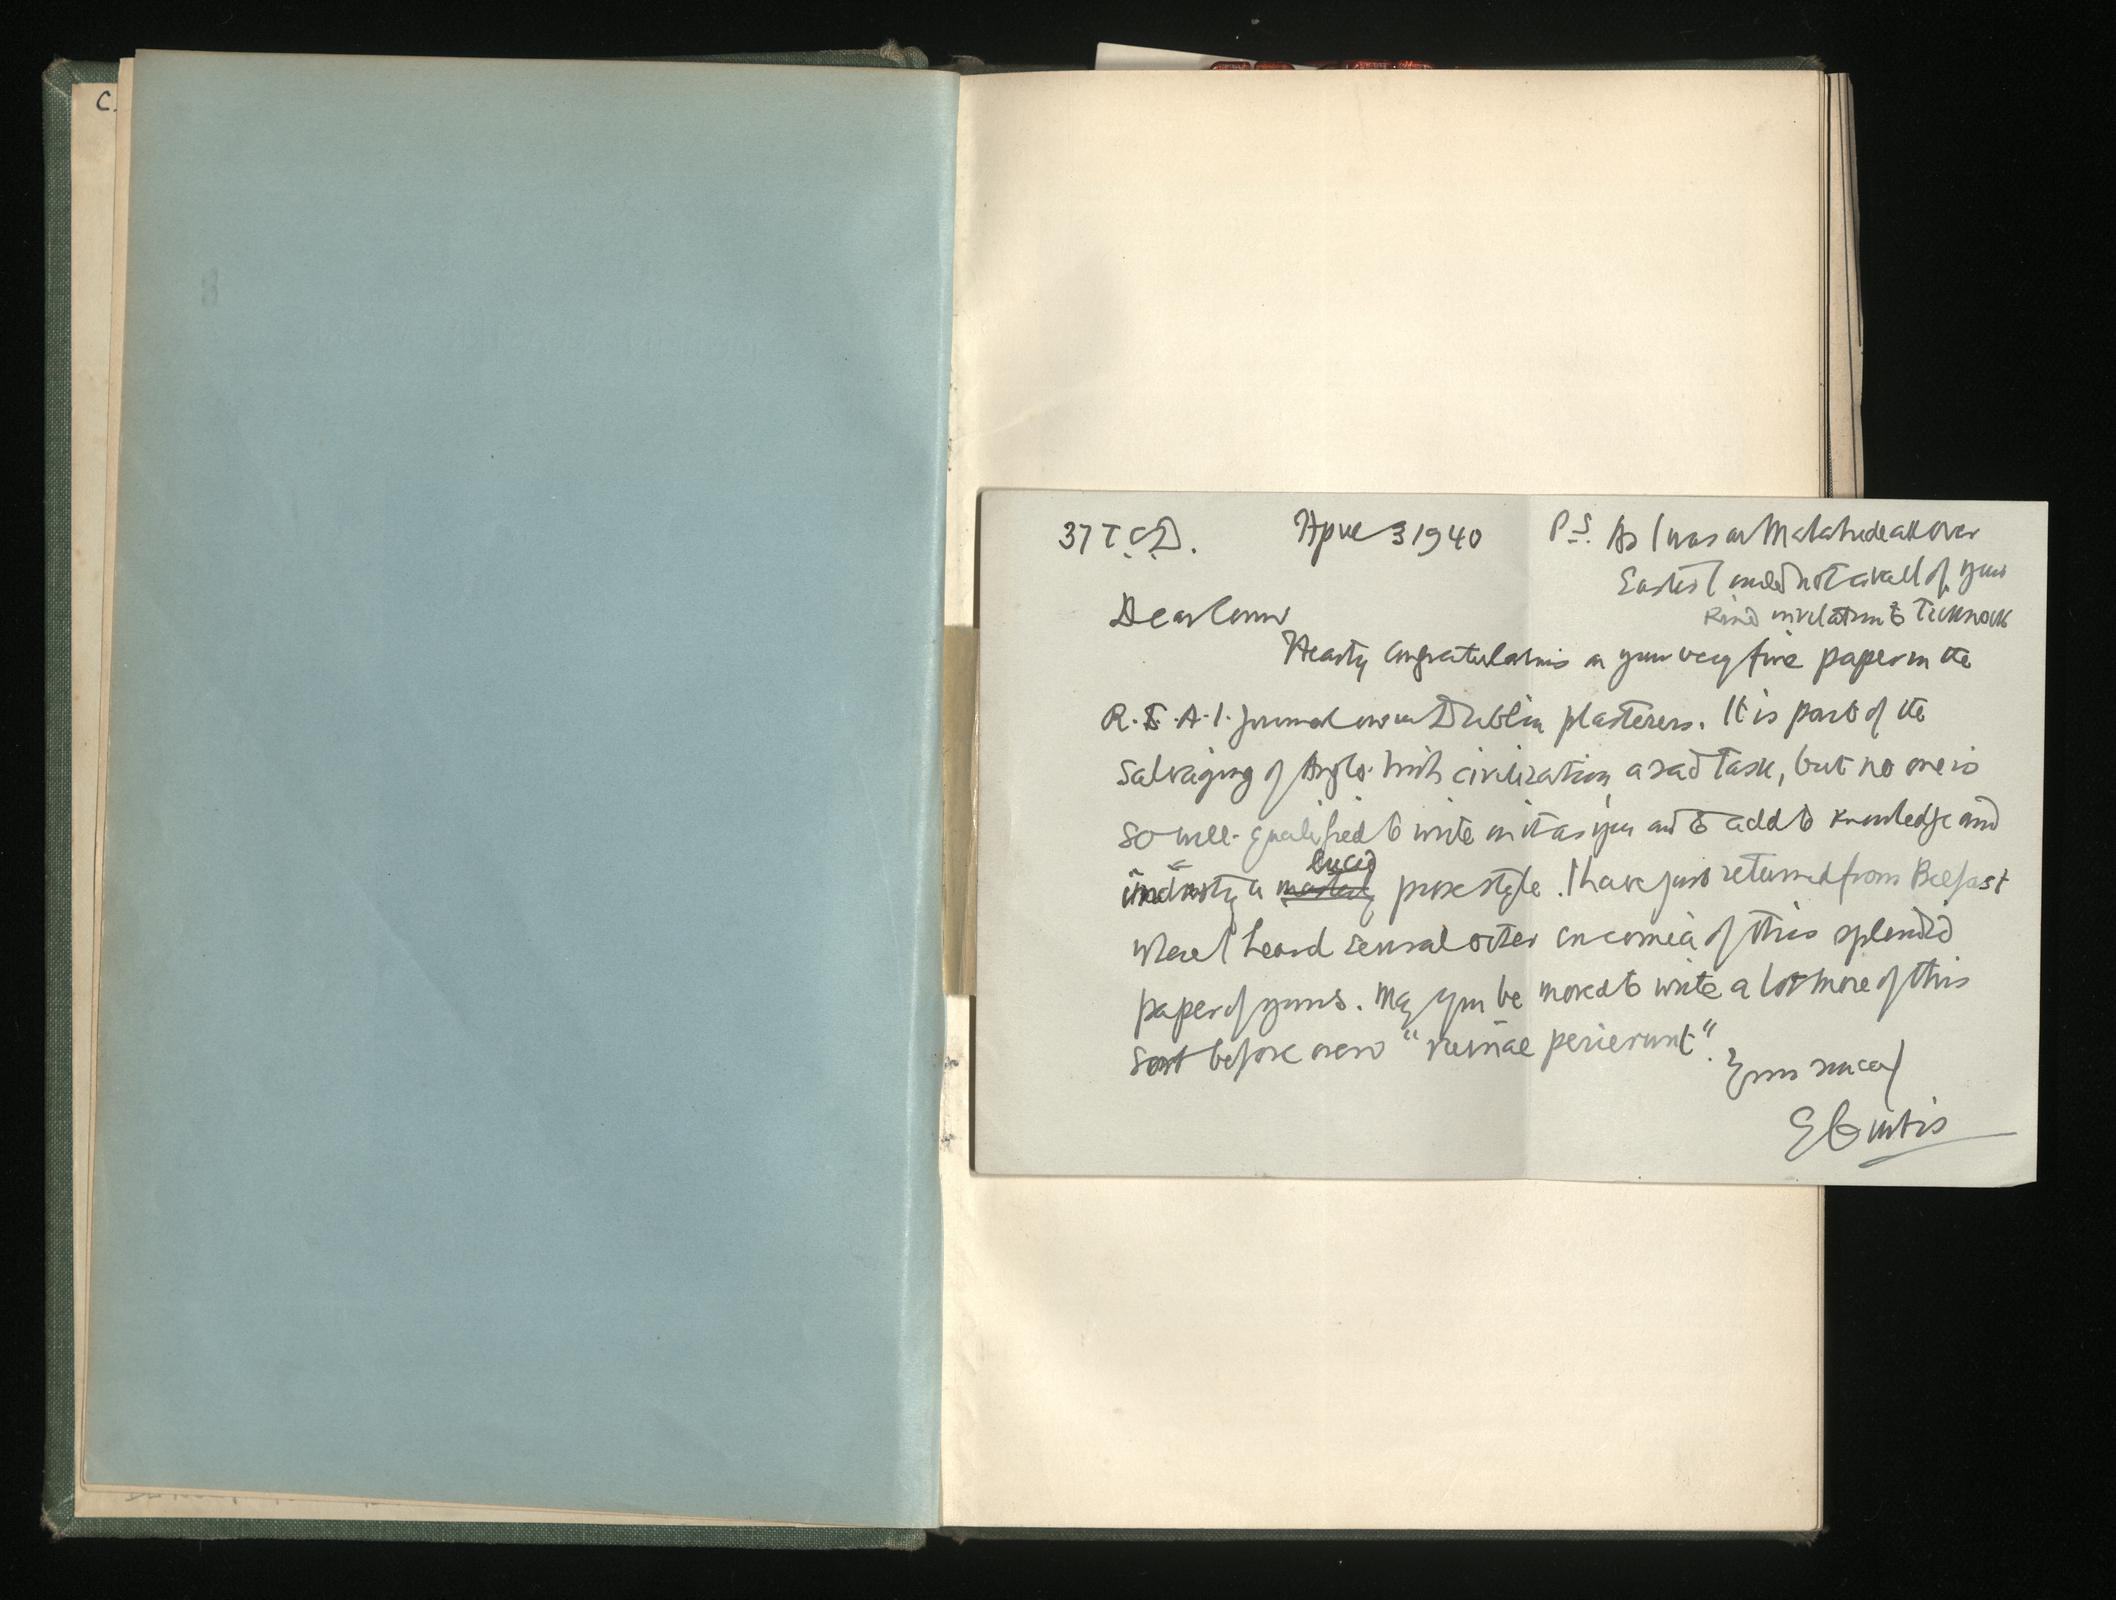 C.
37 T.C.D. April 3 1940
P.S. As I was at Malahide all over
Easter I could not avail of your
kind invitation to Ticknock
Dear Con
Hearty congratulations on your very fine paper in the
R.S.A.I. Journal on Dublin plasterers. It is part of the
salvaging of Anglo-Irish civilization, a sad task, but no one is
so well-qualified to write on it as you and to add to knowledge and
industry a lucid prose style. I have just returned from Belfast
where I heard several other encomia of this splendid
paper of yours. May you be moved to write a lot more of this
sort before even "ruinae perierunt".
Yours sincerely
E Curtis